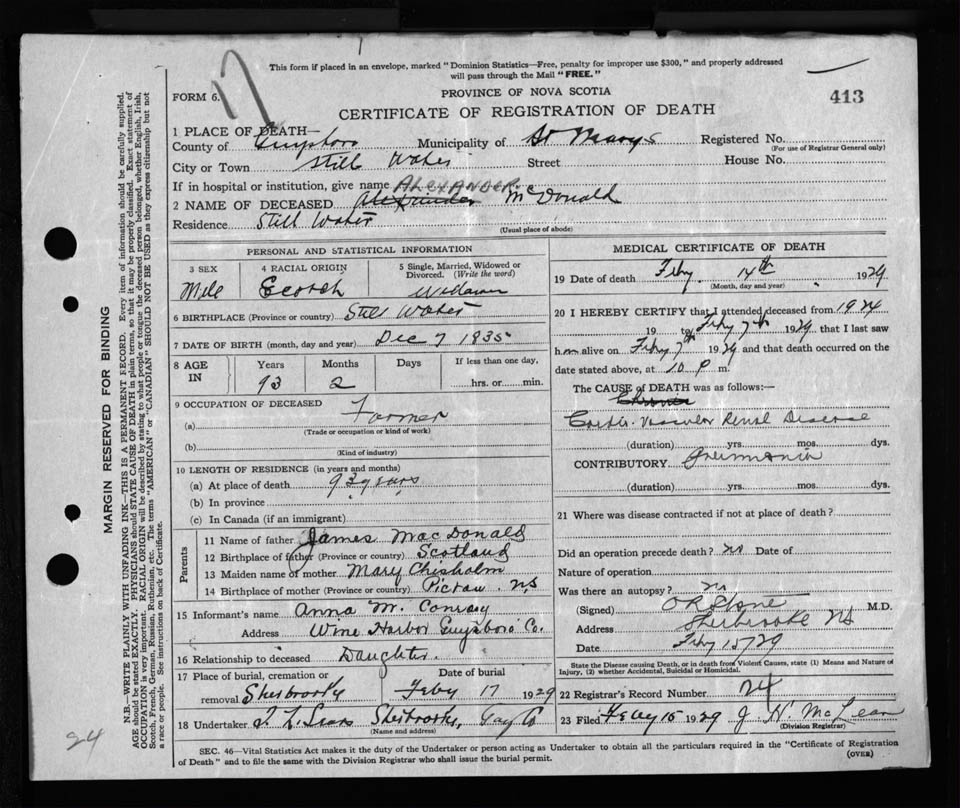 17
This form if placed in an envelope, marked "Dominion Statistics—Free, penalty for improper use $300," and properly addressed
will pass through the Mail "FREE."
FORM 6.
PROVINCE OF NOVA SCOTIA
413
CERTIFICATE OF REGISTRATION OF DEATH
1 PLACE OF DEATH—
County of Guysboro Municipality of St Marys Registered No.
(For use of Registrar General only)
City or Town Still Water Street House No.
If in hospital or institution, give name ALEXANDER
2 NAME OF DECEASED Alexander McDonald
Residence Still Water
(Usual place of abode)
PERSONAL AND STATISTICAL INFORMATION
3 SEX 4 RACIAL ORIGIN 5 Single, Married, Widowed or Divorced. (Write the word)
Scotch
6 BIRTHPLACE (Province or country) Still Water
7 DATE OF BIRTH (month, day and year) Dec 7 1835
8 AGE IN Years Months Days If less than one day,
93 2 hrs. or min.
9 OCCUPATION OF DECEASED
(a) Farmer
(Trade or occupation or kind of work)
(b)
(Kind of industry)
10 LENGTH OF RESIDENCE (in years and months)
(a) At place of death 93 years
(b) In province "
(c) In Canada (if an immigrant)
Parents
11 Name of father James MacDonald
12 Birthplace of father (Province or country) Scotland
13 Maiden name of mother Mary Chisholm
14 Birthplace of mother (Province or country) Pictou NS
15 Informant's name Anna M. Conray
Address Wine Harbor Guysboro Co.
16 Relationship to deceased Daughter
17 Place of burial, cremation or
removal Sherbrooke Date of burial Feby 17 1929
18 Undertaker Sherbrooke, Guy Co
(Name and address)
MEDICAL CERTIFICATE OF DEATH
19 Date of death Feby. 14th 1929
(Month, day and year)
20 I HEREBY CERTIFY that I attended deceased from 1924
19 to Feby 7th 1929, that I last saw
him alive on Feby 7th 1929 and that death occurred on the
date stated above, at 10 P m.
The CAUSE OF DEATH was as follows:—
Chronic
Cardio-Vascular Renal Disease
(duration) yrs. mos. dys.
CONTRIBUTORY Pneumonia
(duration) yrs. mos. dys.
21 Where was disease contracted if not at place of death?
Did an operation precede death? no Date of
Nature of operation
Was there an autopsy? no
(Signed) M.D.
Address Sherbrooke NS
Date Feby 15/29
State the Disease causing Death, or in death from Violent Causes, state (1) Means and Nature of
Injury, (2) whether Accidental, Suicidal or Homicidal.
22 Registrar's Record Number 24
23 Filed Feby 15 1929 J. H. McLean
(Division Registrar)
SEC. 46—Vital Statistics Act makes it the duty of the Undertaker or person acting as Undertaker to obtain all the particulars required in the "Certificate of Registration
of Death" and to file the same with the Division Registrar who shall issue the burial permit.
(OVER)
MARGIN RESERVED FOR BINDING
N.B.—WRITE PLAINLY WITH UNFADING INK—THIS IS A PERMANENT RECORD. Every item of information should be carefully supplied.
AGE should be stated EXACTLY. PHYSICIANS should STATE CAUSE OF DEATH in plain terms, so that it may be properly classified. Exact statement of
OCCUPATION is very important. RACIAL ORIGIN will be described by stating to what people or tongue the deceased person belonged, whether English, Irish,
Scotch, French, German, Russian, Ruthenian, etc. The terms "AMERICAN" or "CANADIAN" SHOULD NOT BE USED as they express citizenship but not
a race or people. See instructions on back of Certificate.
24